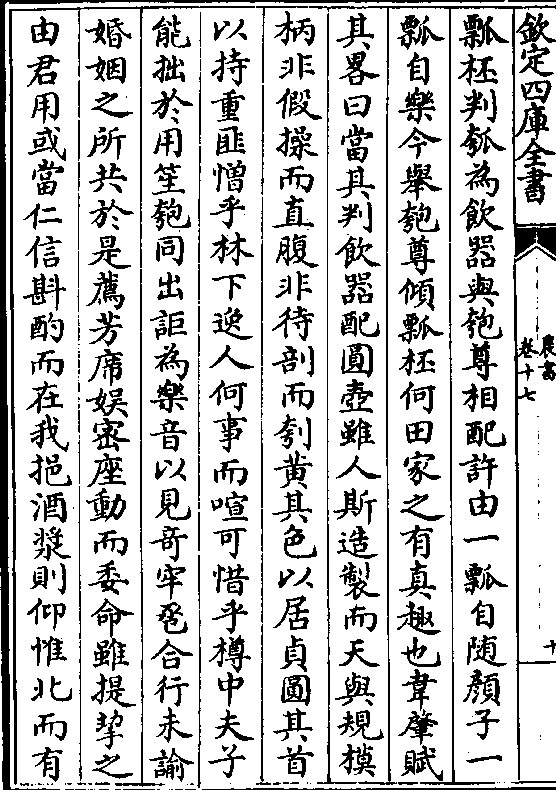 欽定四庫全書
農書
卷十七
十
瓢杯判瓠為飲器與匏尊相配許由一瓢自随顔子一
瓢自樂今舉匏尊傾瓢杯何田家之有真趣也韋肇賦
其畧曰當其判飲器配圓壺雖人斯造製而天與規模
柄非假操而直腹非待剖而刳黄其色以居貞圓其首
以持重匪憎乎林下逸人何事而喧可惜乎樽中夫子
能拙於用笙匏同出詎為樂音以見竒牢卺合行未諭
婚姻之所共於是薦芳席娯密座動而委命雖提挈之
由君用或當仁信斟酌而在我挹酒漿則仰惟北而有